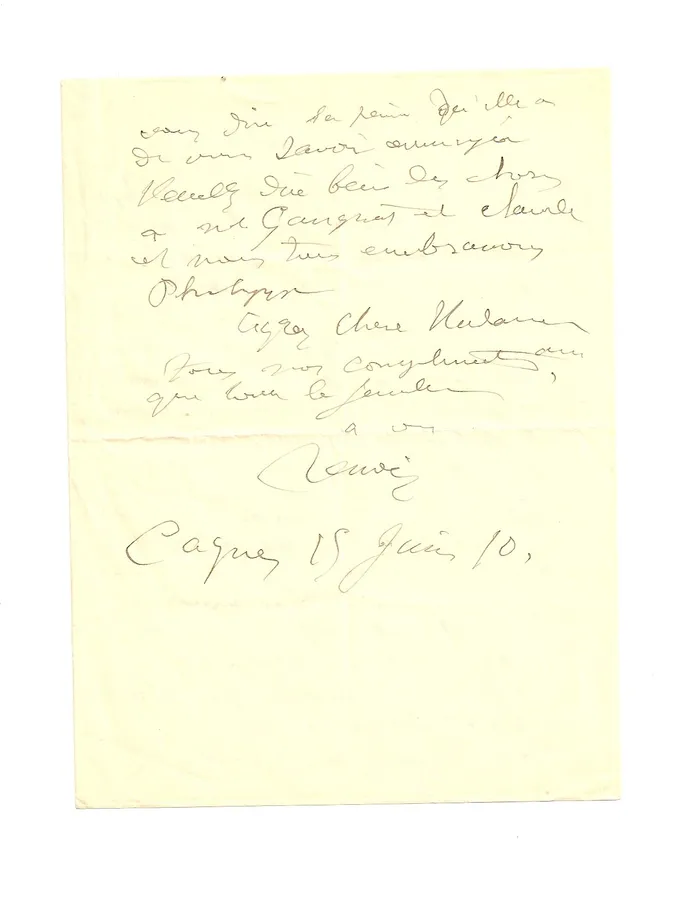 vous dire la peine qu'elle a
de vous savoir
Veuillez dire bien des choses
à Mr Gangnat et
et nous tous embrassons
Philippe
chère Madame
tous nos compliments
que toute la famille
a vous
Renoir
Cagnes 15 Juin 10.